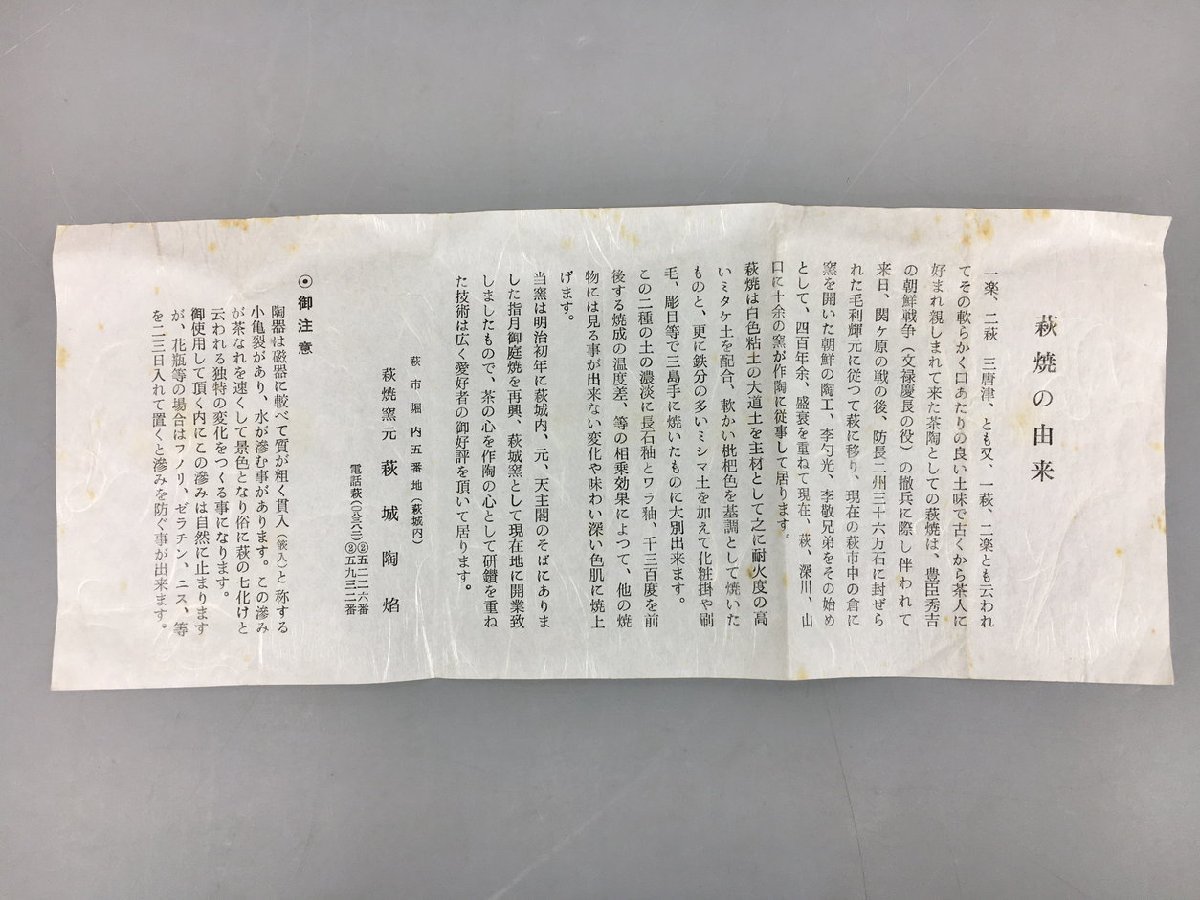 萩焼の由来
一楽、二萩　三唐津、とも又、一萩、二楽とも云われ
てその軟らかく口あたりの良い土味で古くから茶人に
好まれ親しまれて来た茶陶としての萩焼は、豊臣秀吉
の朝鮮戦争（文禄慶長の役）の撤兵に際し伴われて
来日、関ケ原の戦の後、防長二州三十六万石に封ぜら
れた毛利輝元に従つて萩に移り、現在の萩市中の倉に
窯を開いた朝鮮の陶工、李勺光、李敬兄弟をその始め
として、四百年余、盛衰を重ねて現在、萩、深川、山
口に十余の窯が作陶に従事して居ります。
萩焼は白色粘土の大道土を主材として之に耐火度の高
いミタケ土を配合、軟かい枇杷色を基調として焼いた
ものと、更に鉄分の多いミシマ土を加えて化粧掛や刷
毛、彫目等で三島手に焼いたものに大別出来ます。
この二種の土の濃淡に長石釉とワラ釉、千三百度を前
後する焼成の温度差、等の相乗効果によつて、他の焼
物には見る事が出来ない変化や味わい深い色肌に焼上
げます。
当窯は明治初年に萩城内、元、天主閣のそばにありま
した指月御庭焼を再興、萩城窯として現在地に開業致
しましたもので、茶の心を作陶の心として研鑽を重ね
た技術は広く愛好者の御好評を頂いて居ります。
萩市堀内五番地（萩城内）
萩焼窯元　萩城陶焔
電話萩（〇八三八二）②五二二六番
②五九三二番
⦿御注意
陶器は磁器に較べて質が粗く貫入（簌入）と称する
小亀裂があり、水が滲む事があります。この滲み
が茶なれを速くして景色となり俗に萩の七化けと
云われる独特の変化をつくる事になります。
御使用して頂く内にこの滲みは自然に止まります
が、花瓶等の場合はフノリ、ゼラチン、ニス、等
を二三日入れて置くと滲みを防ぐ事が出来ます。